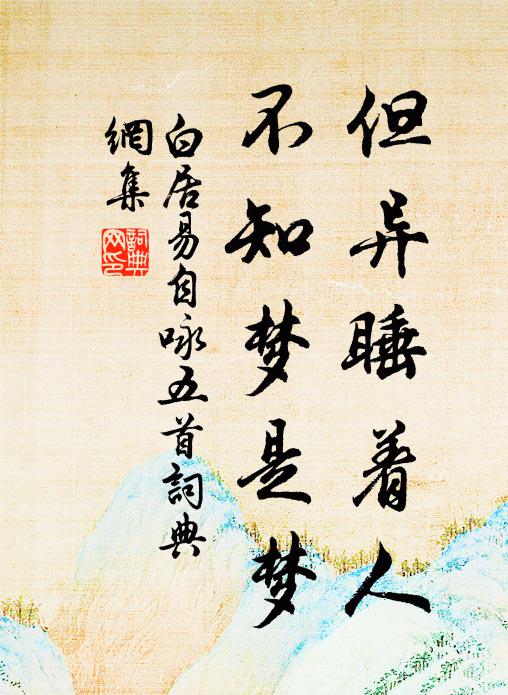 但异睡着人
不知梦是梦
白居易自咏五首詞典
網集
詞典
网印